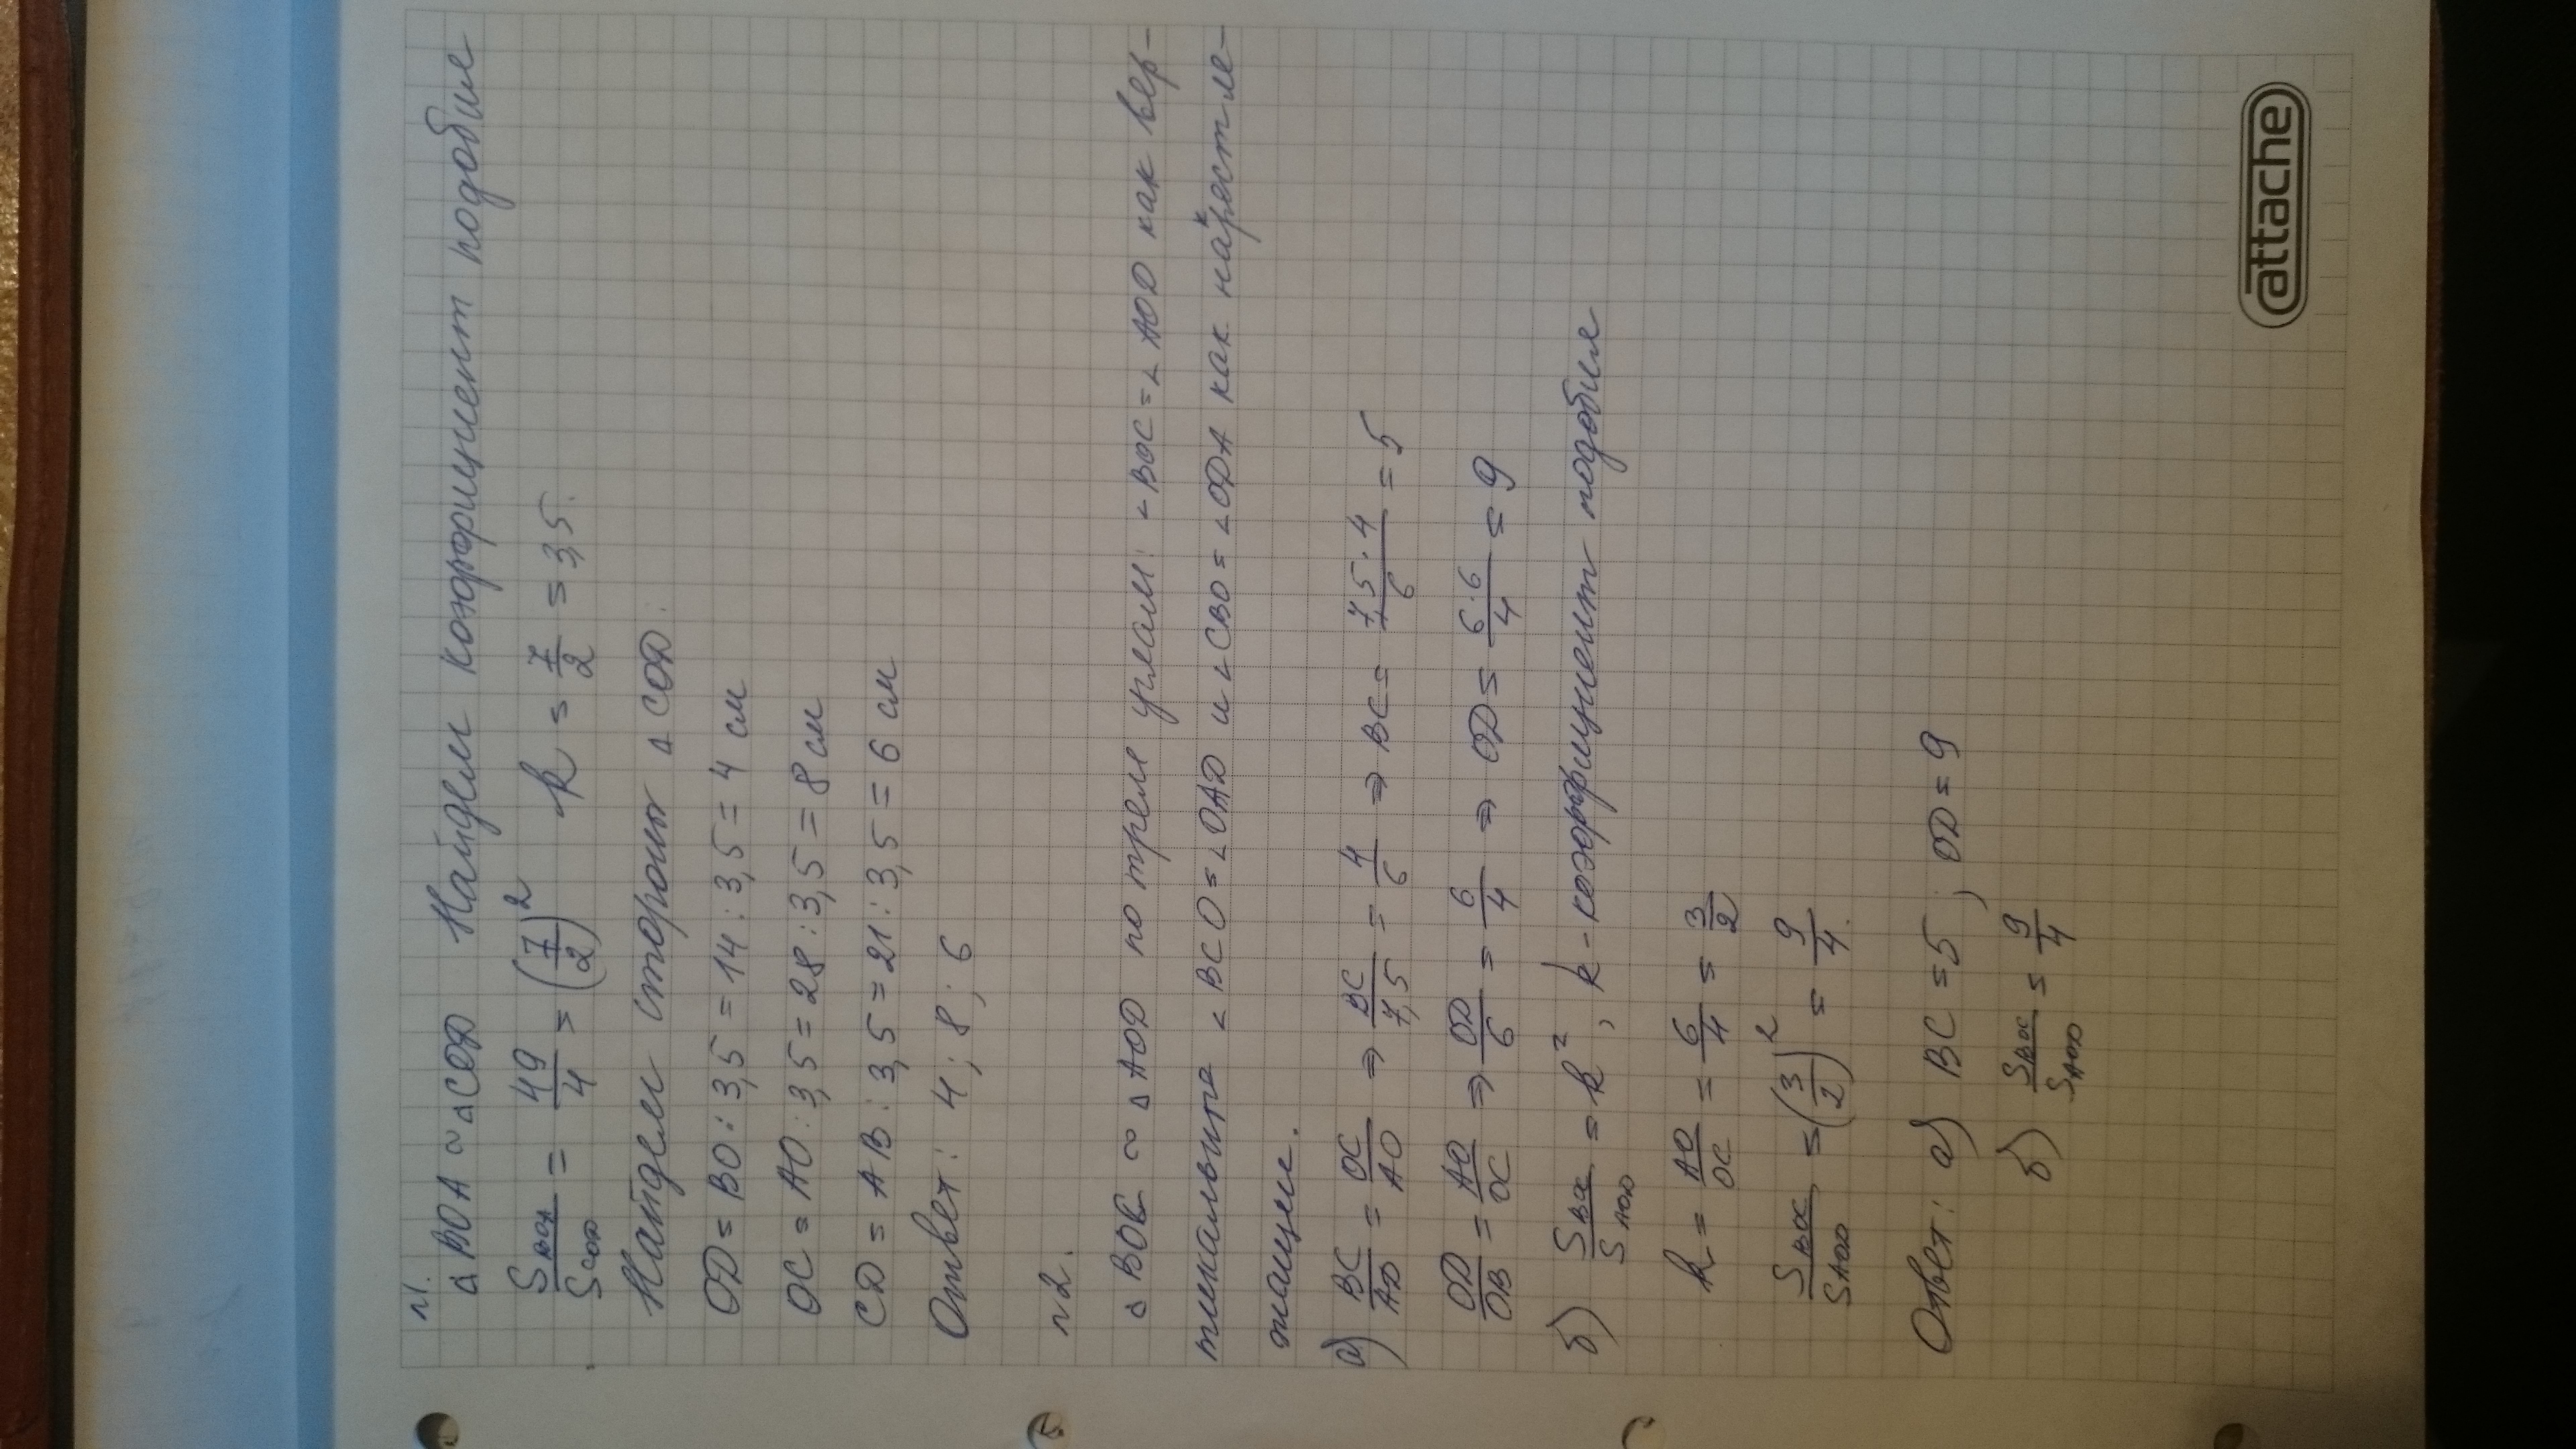 n1.
△ BOA ∾ △COD Найдем коэффициент подобие
S BOA / S COD = 49/4 = (7/2)² k = 7/2 = 3,5.
Найдем стороны △ COD:
OD = BO : 3,5 = 14 : 3,5 = 4 см
OC = AO : 3,5 = 28 : 3,5 = 8 см
CD = AB : 3,5 = 21 : 3,5 = 6 см
Ответ: 4 ; 8 ; 6
n2.
△ BOC ∾ △ AOD по трем углам: ∠ BOC = ∠ AOD как вер-
тикальные ∠ BCO = ∠ OAD и ∠ CBO = ∠ ODA как накрестле-
жащие.
а) BC/AD = OC/AO ⇒ BC/7,5 = 4/6 ⇒ BC = 7,5 · 4/6 = 5
OD/OB = AO/OC ⇒ OD/6 = 6/4 ⇒ OD = 6 · 6/4 = 9
б) S BOC / S AOD = k² , k - коэффициент подобия
k = AO/OC = 6/4 = 3/2
S BOC / S AOD = (3/2)² = 9/4.
Ответ: а) BC = 5 ; OD = 9
б) S BOC / S AOD = 9/4
attache